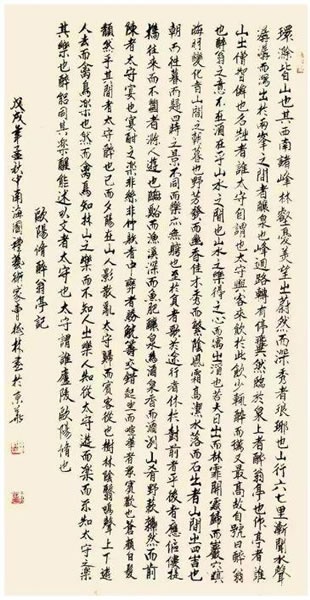 環滁皆山也其西南諸峰林壑憂美望之蔚然而深秀者琅琊也山行六七里漸聞水聲
潺潺而瀉出於兩峰之間者釀泉也峰迴路轉有亭翼然臨於泉上者醉翁亭也作亭者誰
山之僧智僊也名之者誰太守自謂也太守與客來飲於此飲少輒醉而年又最高故自號曰醉翁
也醉翁之意不在酒在乎山水之間也山水之樂得之心而寓之酒也若夫日出而林霏開雲歸而巖穴暝
晦明變化者山間之朝暮也野芳發而幽香佳木秀而繁陰風霜高潔水落而石出者山間之四時也
朝而往暮而歸四時之景不同而樂亦無窮也至於負者歌於途行者休於樹前者呼後者應傴僂提
攜往來而不絕者滁人遊也臨谿而漁溪深而魚肥釀泉為酒泉香而酒洌山肴野蔌雜然而前
陳者太守宴也宴酣之樂非絲非竹射者中弈者勝觥籌交錯起坐而喧嘩者眾賓歡也蒼顏白髮
頹然乎其間者太守醉也已而夕陽在山人影散亂太守歸而賓客從也樹林陰翳鳴聲上下遊
人去而禽鳥樂也然而禽鳥知山林之樂而不知人之樂人知從太守遊而樂而不知太守之樂
其樂也醉能同其樂醒能述以文者太守也太守謂誰廬陵歐陽脩也
歐陽脩醉翁亭記
戊戌年孟秋中南海國禮藝術家書於京華